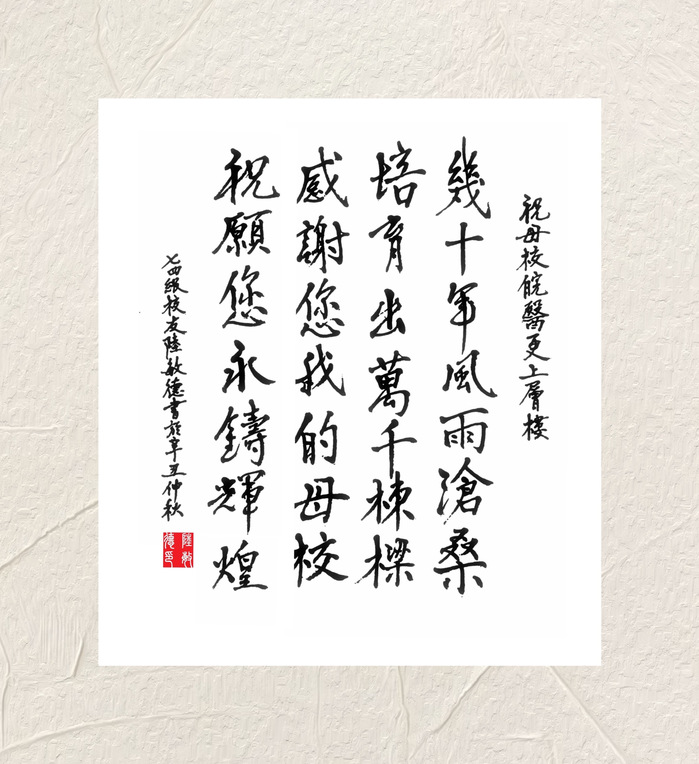 祝母校皖醫更上層樓
幾十年風雨滄桑
培育出萬千棟樑
感謝您我的母校
祝願您永鑄輝煌
七四級校友陸敏德書於辛丑仲秋
陸敏德印